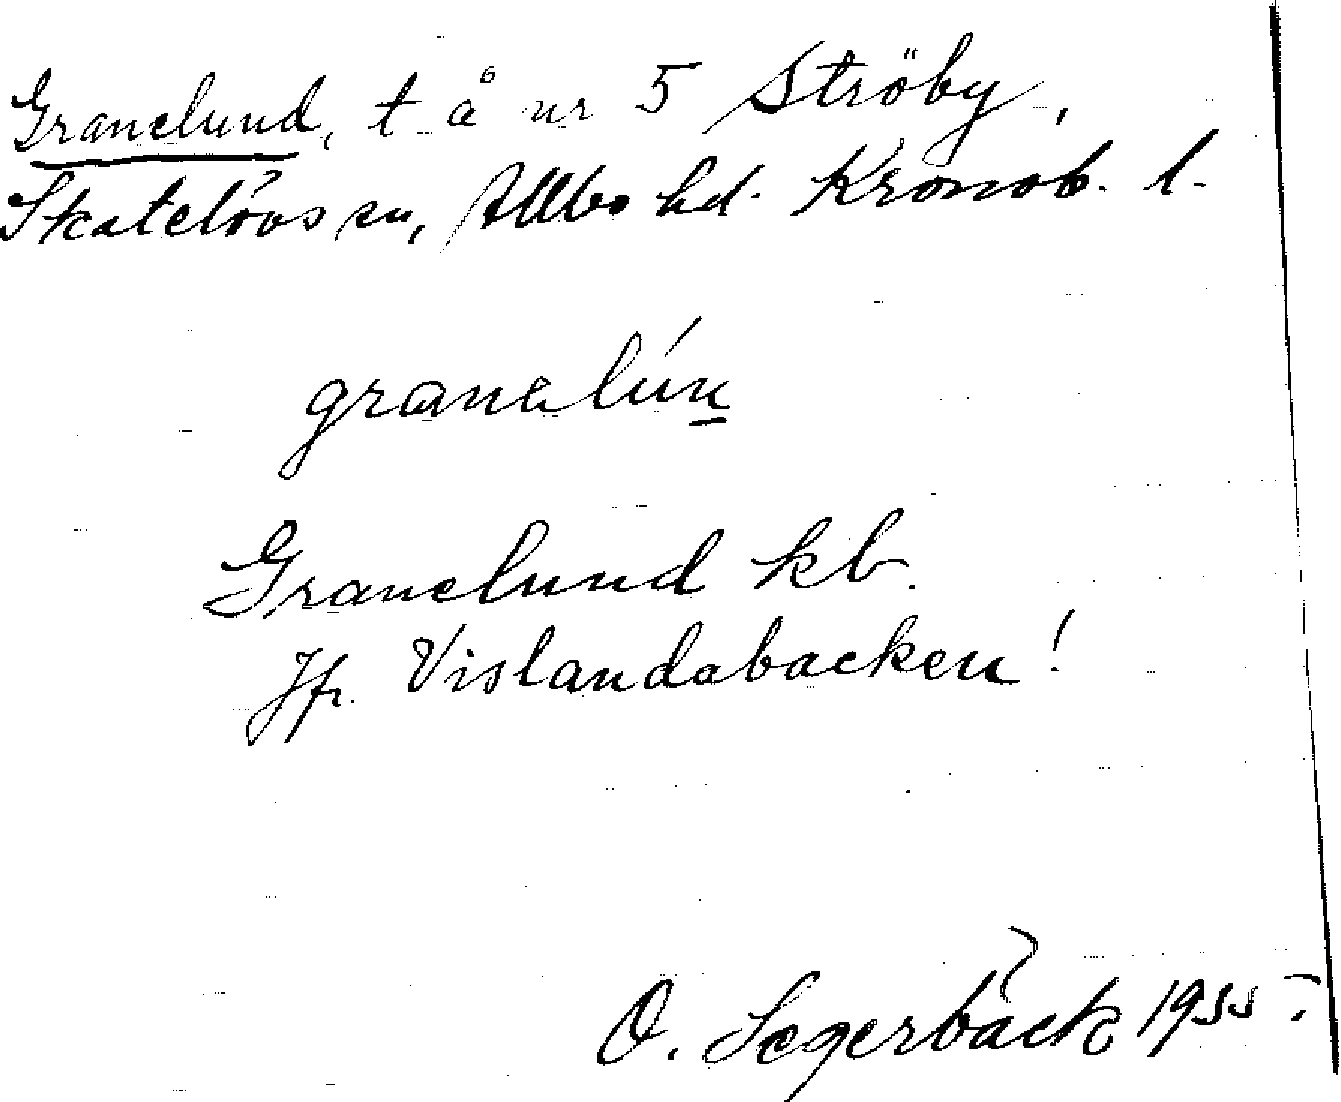 Granelund, t. å nr 5 Ströby,
Skatelövs sn, Allbo hd. Kronob. l.
granalún
Granelund kb.
Jfr. Vislandabacken!
O. Segerbäck 1955.